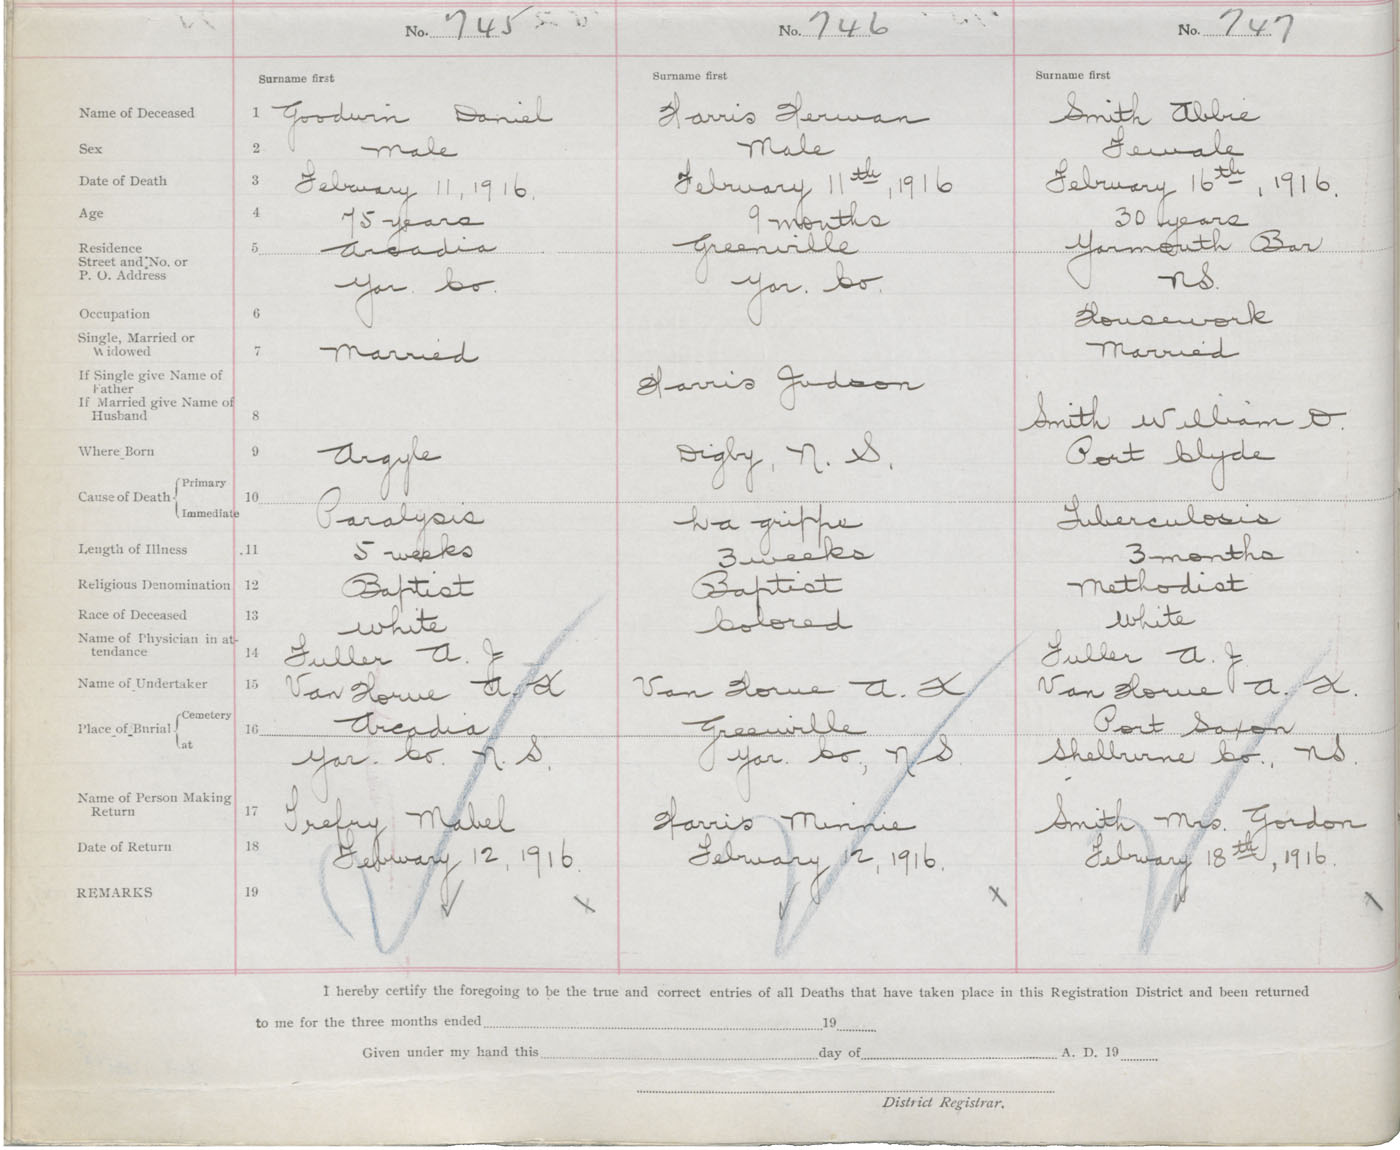 No. 745 No. 746 No. 747
Surname first Surname first Surname first
Name of Deceased 1 Goodwin Daniel Harris Herman Smith Abbie
Sex 2 Male Male Female
Date of Death 3 February 11, 1916. February 11th, 1916 February 16th, 1916.
Age 4 75 years 9 months 30 years
Residence 5 Arcadia Greenville Yarmouth Bar
Street and No. or
P. O. Address Yar. Co. Yar. Co. N.S.
Occupation 6 Housework
Single, Married or
Widowed 7 Married Married
If Single give Name of
Father Harris Judson
If Married give Name of
Husband 8 Smith William D.
Where Born 9 Argyle Digby, N. S. Port Clyde
Primary
Cause of Death 10
Immediate Paralysis La grippe Tuberculosis
Length of Illness 11 5 weeks 3 weeks 3 months
Religious Denomination 12 Baptist Baptist Methodist
Race of Deceased 13 White Colored White
Name of Physician in at-
tendance 14 Fuller A. J. Fuller A. J.
Name of Undertaker 15 Van Horne A. K Van Horne A. K Van Horne A. K.
Cemetery
Place of Burial 16 Arcadia Greenville Port Saxon
at Yar. Co. N. S. Yar. Co., N S. Shelburne Co., NS.
Name of Person Making
Return 17 Trefry Mabel Harris Minnie Smith Mrs. Gordon
Date of Return 18 February 12, 1916. February 12, 1916. February 18th, 1916.
REMARKS 19
I hereby certify the foregoing to be the true and correct entries of all Deaths that have taken place in this Registration District and been returned
to me for the three months ended 19
Given under my hand this day of A. D. 19
District Registrar.